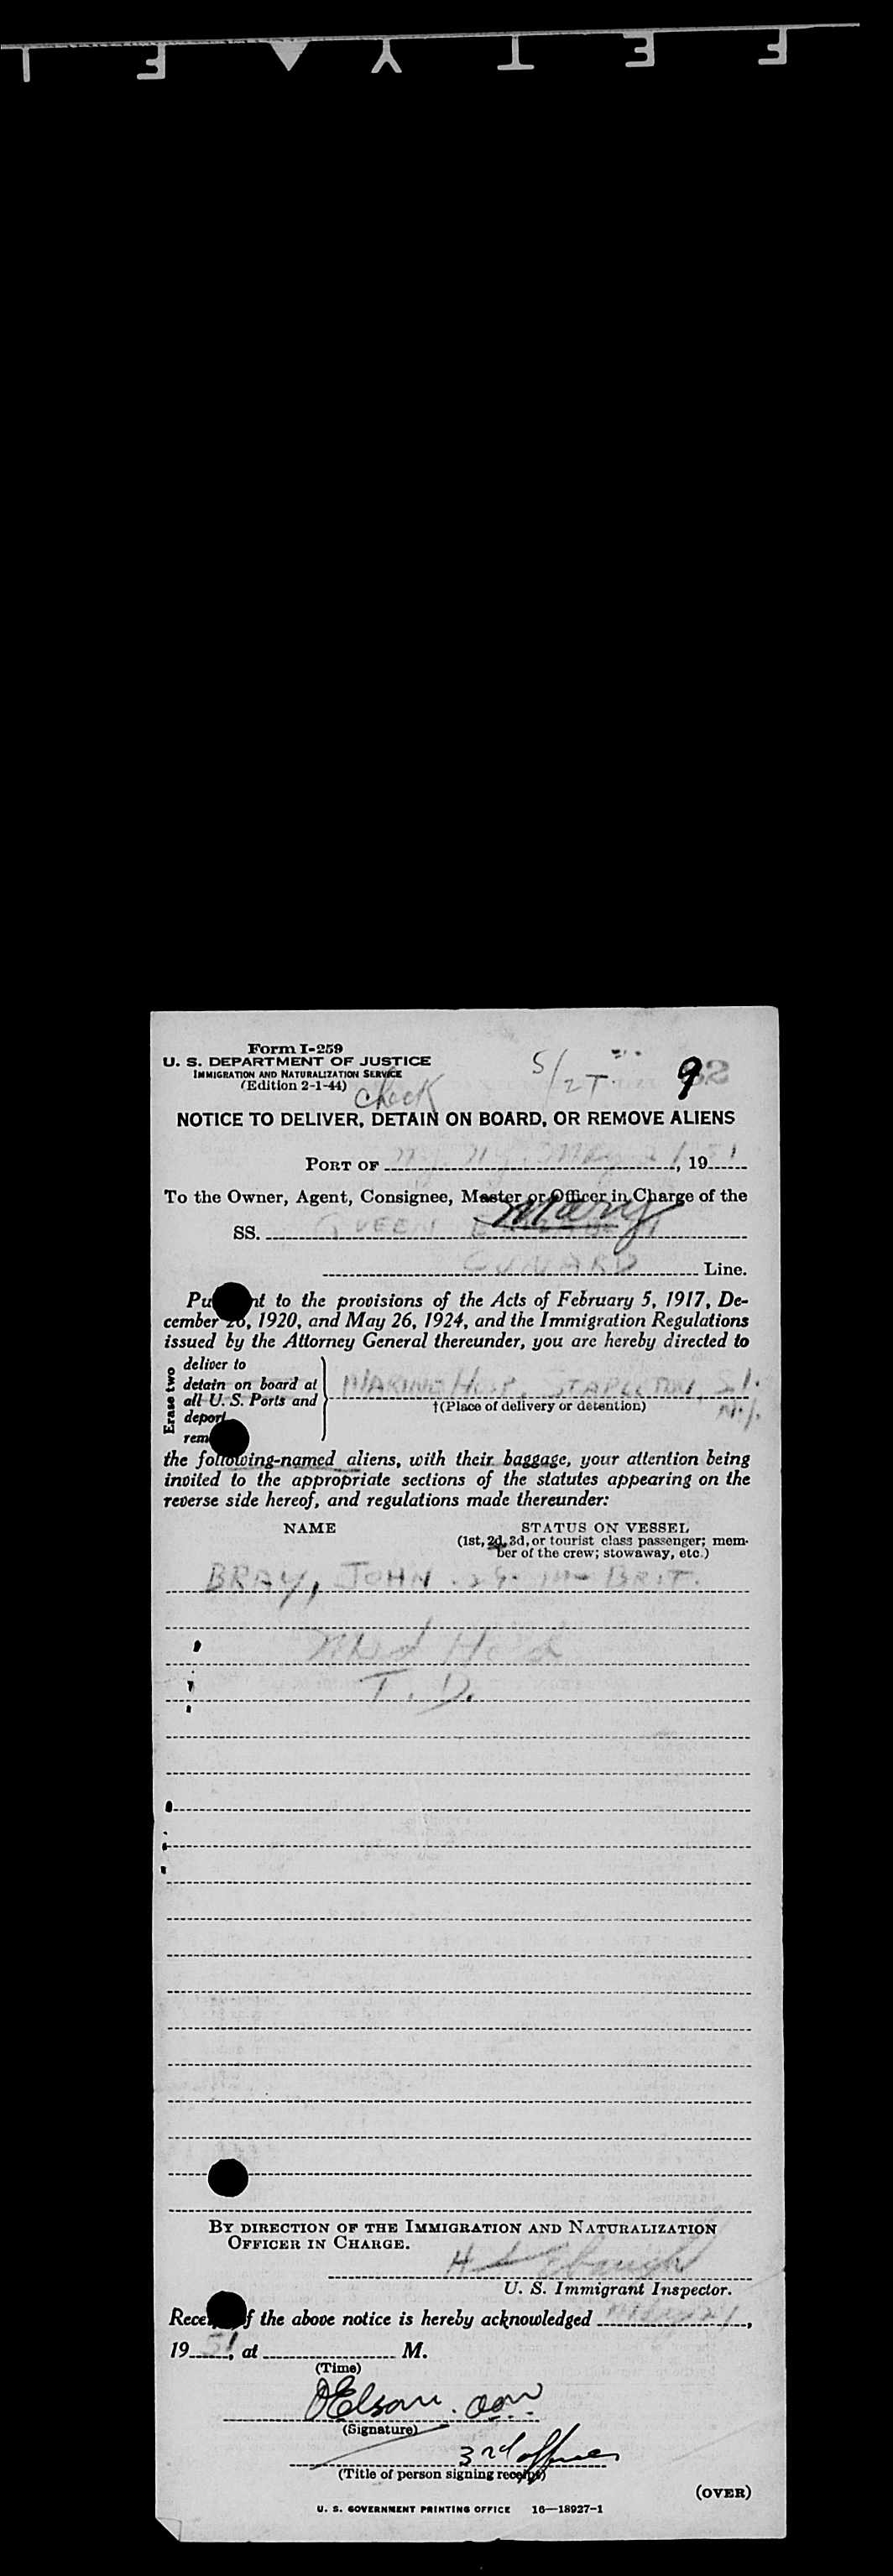 Form I-259
U. S. DEPARTMENT OF JUSTICE
IMMIGRATION AND NATURALIZATION SERVICE
(Edition 2-1-44)
check
9
32
NOTICE TO DELIVER, DETAIN ON BOARD, OR REMOVE ALIENS
PORT OF N.Y. N.Y. May 21, 1951
To the Owner, Agent, Consignee, Master or Officer in Charge of the
SS. QUEEN Mary
CUNARD Line.
Pu nt to the provisions of the Acts of February 5, 1917, De-
cember 26, 1920, and May 26, 1924, and the Immigration Regulations
issued by the Attorney General thereunder, you are hereby directed to
Erase two
deliver to
detain on board at
all U. S. Ports and
deport
rem
MARINE HOSP. STAPLETON, S.I.
N.Y.
†(Place of delivery or detention)
the following-named aliens, with their baggage, your attention being
invited to the appropriate sections of the statutes appearing on the
reverse side hereof, and regulations made thereunder:
NAME STATUS ON VESSEL
(1st, 2d, 3d, or tourist class passenger; mem-
ber of the crew; stowaway, etc.)
BRAY, JOHN . 29. m- BRIT.
Med Hold
T. D.
BY DIRECTION OF THE IMMIGRATION AND NATURALIZATION
OFFICER IN CHARGE.
U. S. Immigrant Inspector.
Rece f the above notice is hereby acknowledged May 21,
1951, at M.
(Time)
(Signature)
3rd officer
(Title of person signing receipt)
(OVER)
U. S. GOVERNMENT PRINTING OFFICE 16—18927-1